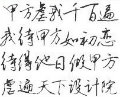 甲方虐我千百遍
我待甲方如初恋
待得他日做甲方
虐遍天下设计院